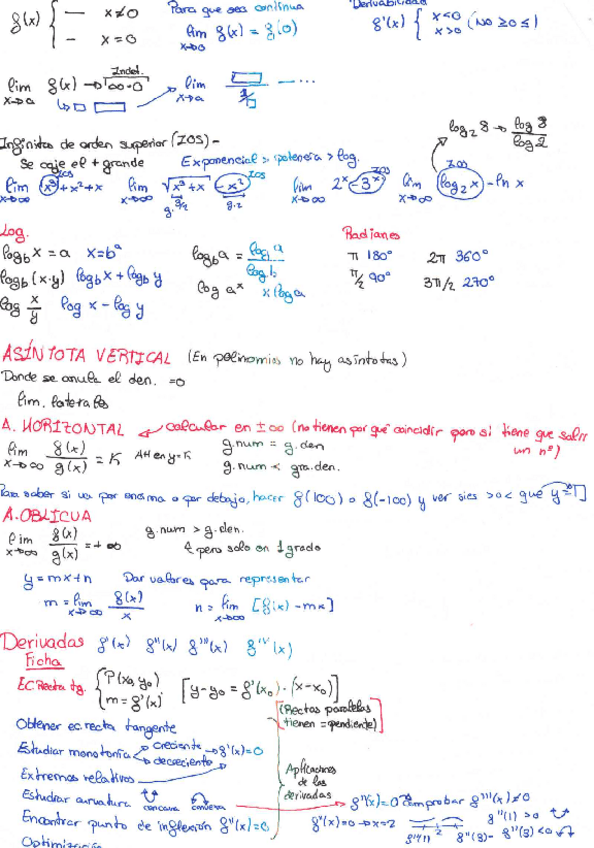 f(x) { — x≠0
— x=0
Para que sea continua
lim x→0 f(x) = f(0)
Derivabilidad
f'(x) { x<0
x>0 (No ≥0≤)
lim x→a f(x) → Indet. ∞·0
lim x→a
Infinitos de orden superior (IOS) -
Se coje el + grande
Exponencial > potencia > log.
log₂ 8 → log 8 / log 2
IOS
lim x→∞ x³+x²+x
lim x→∞ √(x³+x) - x² IOS
g. 3/2 g. 2
lim x→∞ 2ˣ - 3ˣ IOS
lim x→∞ log₂ x - ln x IOS
Log.
log_b x = a x = bᵃ
log_b (x·y) log_b x + log_b y
log x/y log x - log y
log_b a = log a / log b
log aˣ x log a
Radianes
π 180° 2π 360°
π/2 90° 3π/2 270°
ASÍNTOTA VERTICAL (En polinomios no hay asíntotas)
Donde se anula el den. = 0
lim. laterales
A. HORIZONTAL ← calcular en ±∞ (no tienen por qué coincidir pero si tiene que salir un nº)
lim x→∞ f(x)/g(x) = K AH en y=K
g.num = g.den
g.num < gra.den.
Para saber si va por encima o por debajo, hacer f(100) o f(-100) y ver si es > o < que y=1
A. OBLICUA
lim x→∞ f(x)/g(x) = +∞
g.num > g.den.
pero solo en 1 grado
y = mx+n Dar valores para representar
m = lim x→∞ f(x)/x n = lim x→∞ [f(x) - mx]
Derivadas f'(x) f''(x) f'''(x) f'ᵛ(x)
Ficha
EC Recta tg. { P(x₀, y₀)
m = f'(x) [y-y₀ = f'(x₀)·(x-x₀)]
(Rectas paralelas tienen = pendiente)
Obtener ec. recta tangente
Estudiar monotonía creciente → f'(x)=0
decreciente
Extremos relativos
Estudiar curvatura concava convexa
Encontrar punto de inflexión f''(x)=0
Optimización
Aplicaciones de las derivadas
f''(x)=0 comprobar f'''(x)≠0
f''(x)=0 → x=2
f''(1) f''(3)
f''(1) > 0
f''(3) < 0